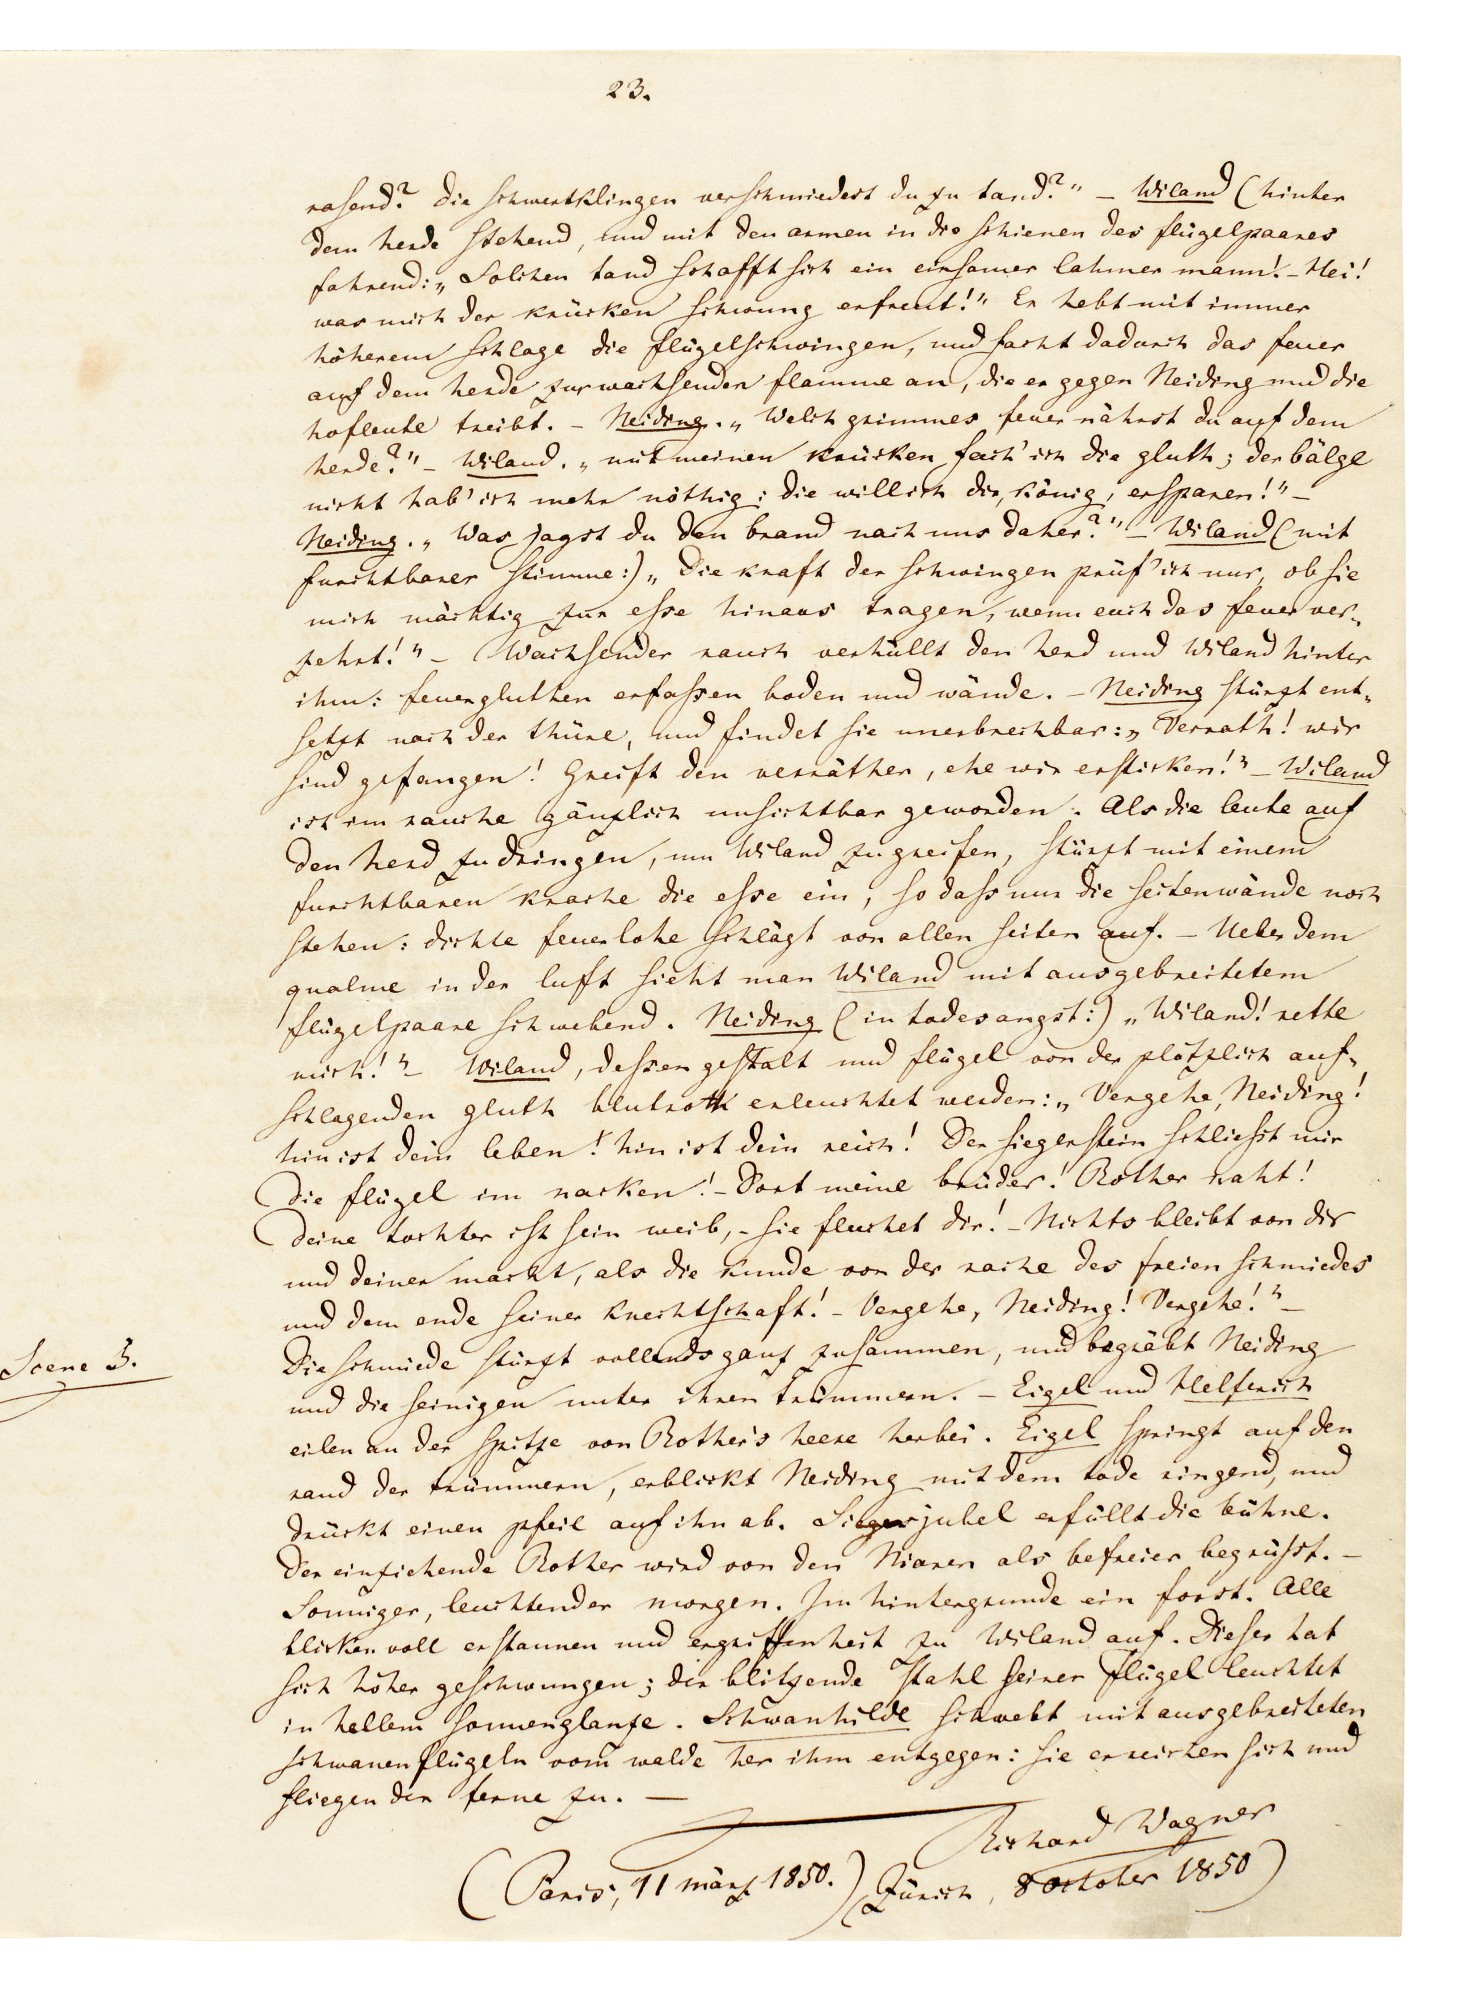 23.
rasend? die schwertklingen verschmiedest du zu tand?" – Wiland (hinter
dem herde stehend, und mit den armen in die schienen des flügelpaares
fahrend: „Solchen tand schafft sich ein einsamer lahmer mann! – Hei!
was mich der krücken schwung erfreut!" Er hebt mit immer
höherem schlage die flügelschwingen, und facht dadurch das feuer
auf dem herde zur wachsenden flamme an, die er gegen Neiding und die
hofleute treibt. – Neiding. „Welch grimmes feuer nährst du auf dem
herde?" – Wiland. „mit meinen krücken fach' ich die gluth; der bälge
nicht hab' ich mehr nöthig: die will ich dir, könig, ersparen!" –
Neiding. „Was jagst du den brand nach uns daher?" – Wiland (mit
furchtbarer stimme:) „Die kraft der schwingen prüf' ich nur, ob sie
mich mächtig zur esse hinaus tragen, wenn euch das feuer ver-
zehrt!" – Wachsender rauch verhüllt den herd und Wiland hinter
ihm: feuergluthen erfassen boden und wände. – Neiding stürzt ent-
setzt nach der thüre, und findet sie unerbrechbar: „Verrath! wir
sind gefangen! Greift den verräther, ehe wir ersticken!" – Wiland
ist im rauche gänzlich unsichtbar geworden. Als die leute auf
den herd zu dringen, um Wiland zu greifen, stürzt mit einem
furchtbaren krache die esse ein, so dass nur die seitenwände noch
stehen: dichte feuerlohe schlägt von allen seiten auf. – Ueber dem
qualme in der luft sieht man Wiland mit ausgebreitetem
flügelpaare schwebend. Neiding (in todesangst:) „Wiland! rette
mich!" – Wiland, dessen gestalt und flügel von der plötzlich auf-
schlagenden gluth blutroth erleuchtet werden: „Vergehe, Neiding!
hin ist dein leben! hin ist dein reich! Der siegerstein schließt mir
die flügel im nacken! – Dort meine brüder! Rother naht!
Deine tochter ist sein weib, – sie fluchet dir! – Nichts bleibt von dir
und deiner macht, als die kunde von der rache des freien schmiedes
und dem ende seiner knechtschaft! – Vergehe, Neiding! Vergehe!" –
Scene 3.
Die schmiede stürzt vollends ganz zusammen, und begräbt Neiding
und die seinigen unter ihren trümmern. – Eigel und Helferich
eilen an der spitze von Rother's heere herbei. Eigel springt auf den
rand der trümmern, erblickt Neiding mit dem tode ringend, und
drückt einen pfeil auf ihn ab. Siegesjubel erfüllt die bühne.
Der einziehende Rother wird von den Niaren als befreier begrüßt. –
Sonniger, leuchtender morgen. Im hintergrunde ein forst. Alle
blicken voll erstaunen und ergriffenheit zu Wiland auf. Dieser hat
sich höher geschwungen; der blitzende stahl seiner flügel leuchtet
in hellem sonnenglanze. Schwanhilde schwebt mit ausgebreiteten
schwanenflügeln vom walde her ihm entgegen: sie erreichen sich und
fliegen der ferne zu. –
Richard Wagner
(Paris, 11 märz 1850.) (Zürich, 8 October 1850)